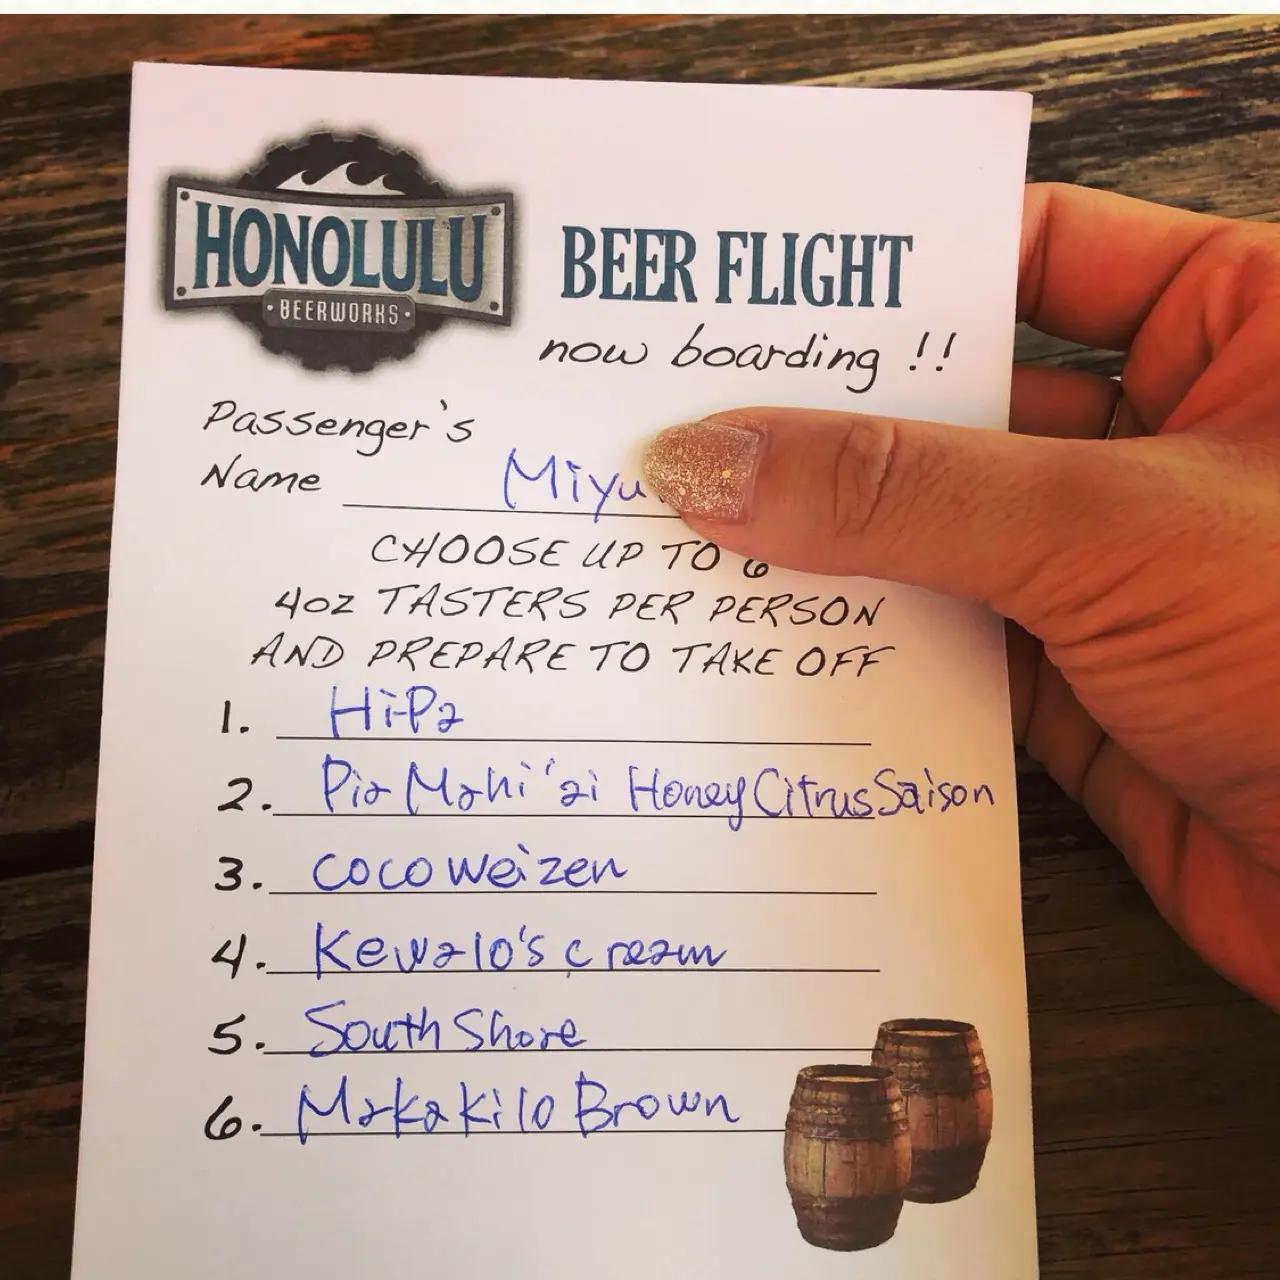 HONOLULU
·BEERWORKS·
BEER FLIGHT
now boarding !!
Passenger's
Name
CHOOSE UP TO 6
4oz TASTERS PER PERSON
AND PREPARE TO TAKE OFF
1. Hi-Pa
2. Pia Mahi'ai Honey Citrus Saison
3. coco weizen
4. Kewalo's cream
5. South Shore
6. Makakilo Brown